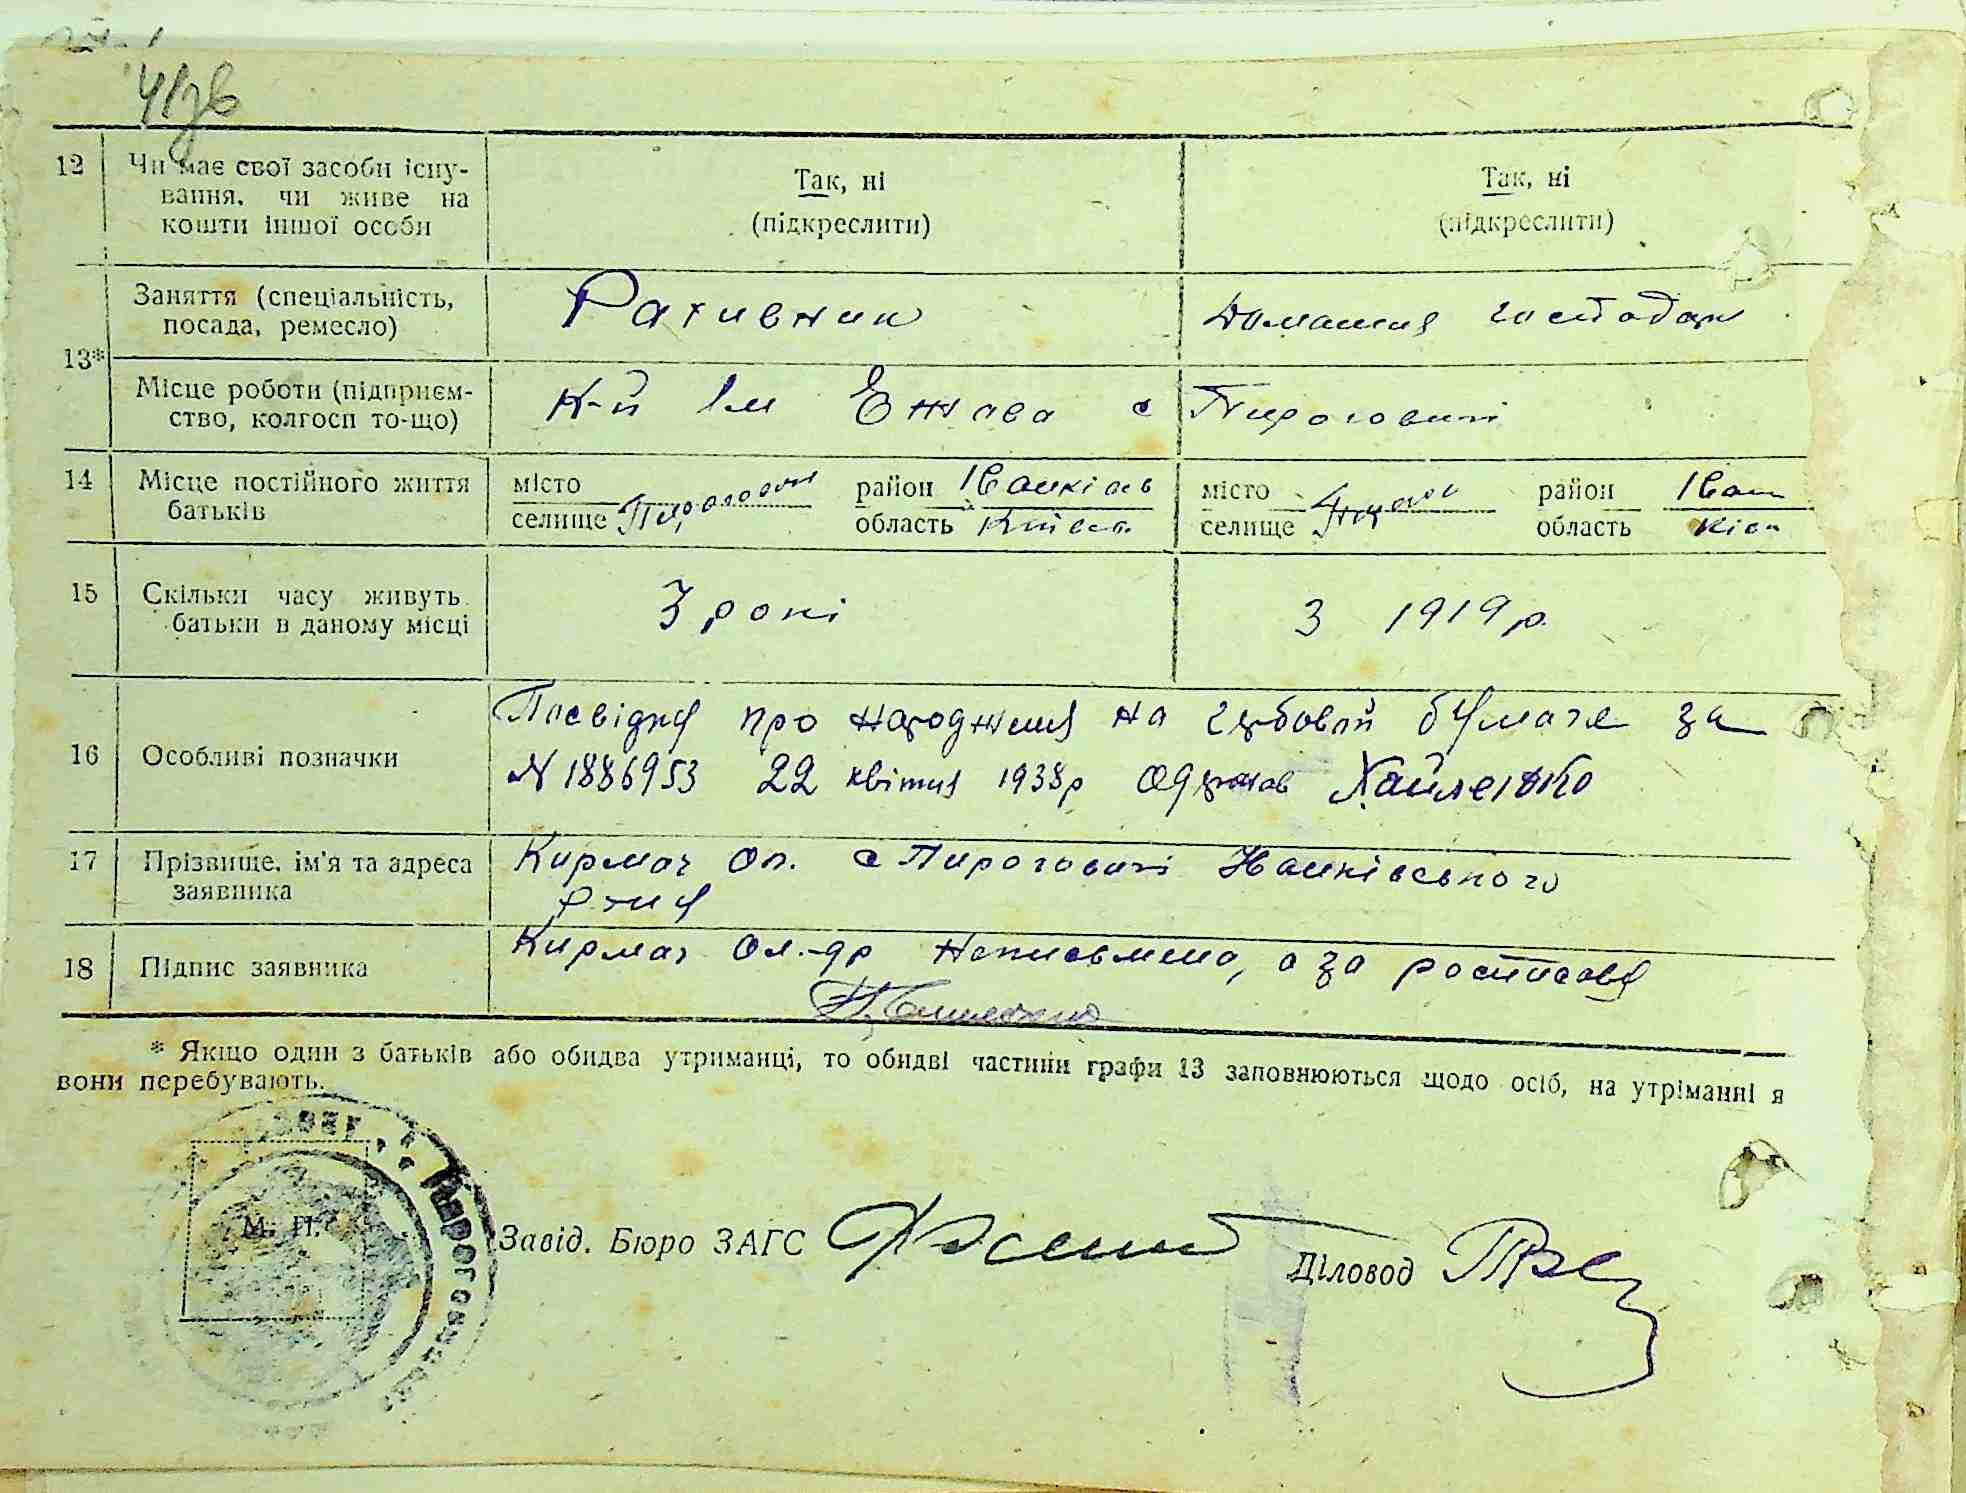 41зв
12 Чи має свої засоби існу-
вання, чи живе на
кошти іншої особи
Так, ні
(підкреслити)
Так, ні
(підкреслити)
13*
Заняття (спеціальність,
посада, ремесло)
Рахивник
домашня
Місце роботи (підприєм-
ство, колгосп то-що)
к-п Ім Ежова с Пироговичі
14 Місце постійного життя
батьків
місто
селище Пироговичі
район Іванків
область Київск.
місто
селище
район Іван
область Київ
15 Скільки часу живуть
батьки в даному місці
3 рокі
З 1919 р.
16 Особливі позначки
Посвідку про народження на гербовій бумаге за
N 1886953 22 квітня 1938р Одержав Хайленко
17 Прізвище, ім'я та адреса
заявника
Кирмач Ол. с Пироговичі Іванківського
р-на
18 Підпис заявника
Кирмач Ол-др Неписьмена, а за
* Якщо один з батьків або обидва утриманці, то обидві частини графи 13 заповнюються щодо осіб, на утріманні я
вони перебувають.
М. П.
Завід. Бюро ЗАГС
Діловод